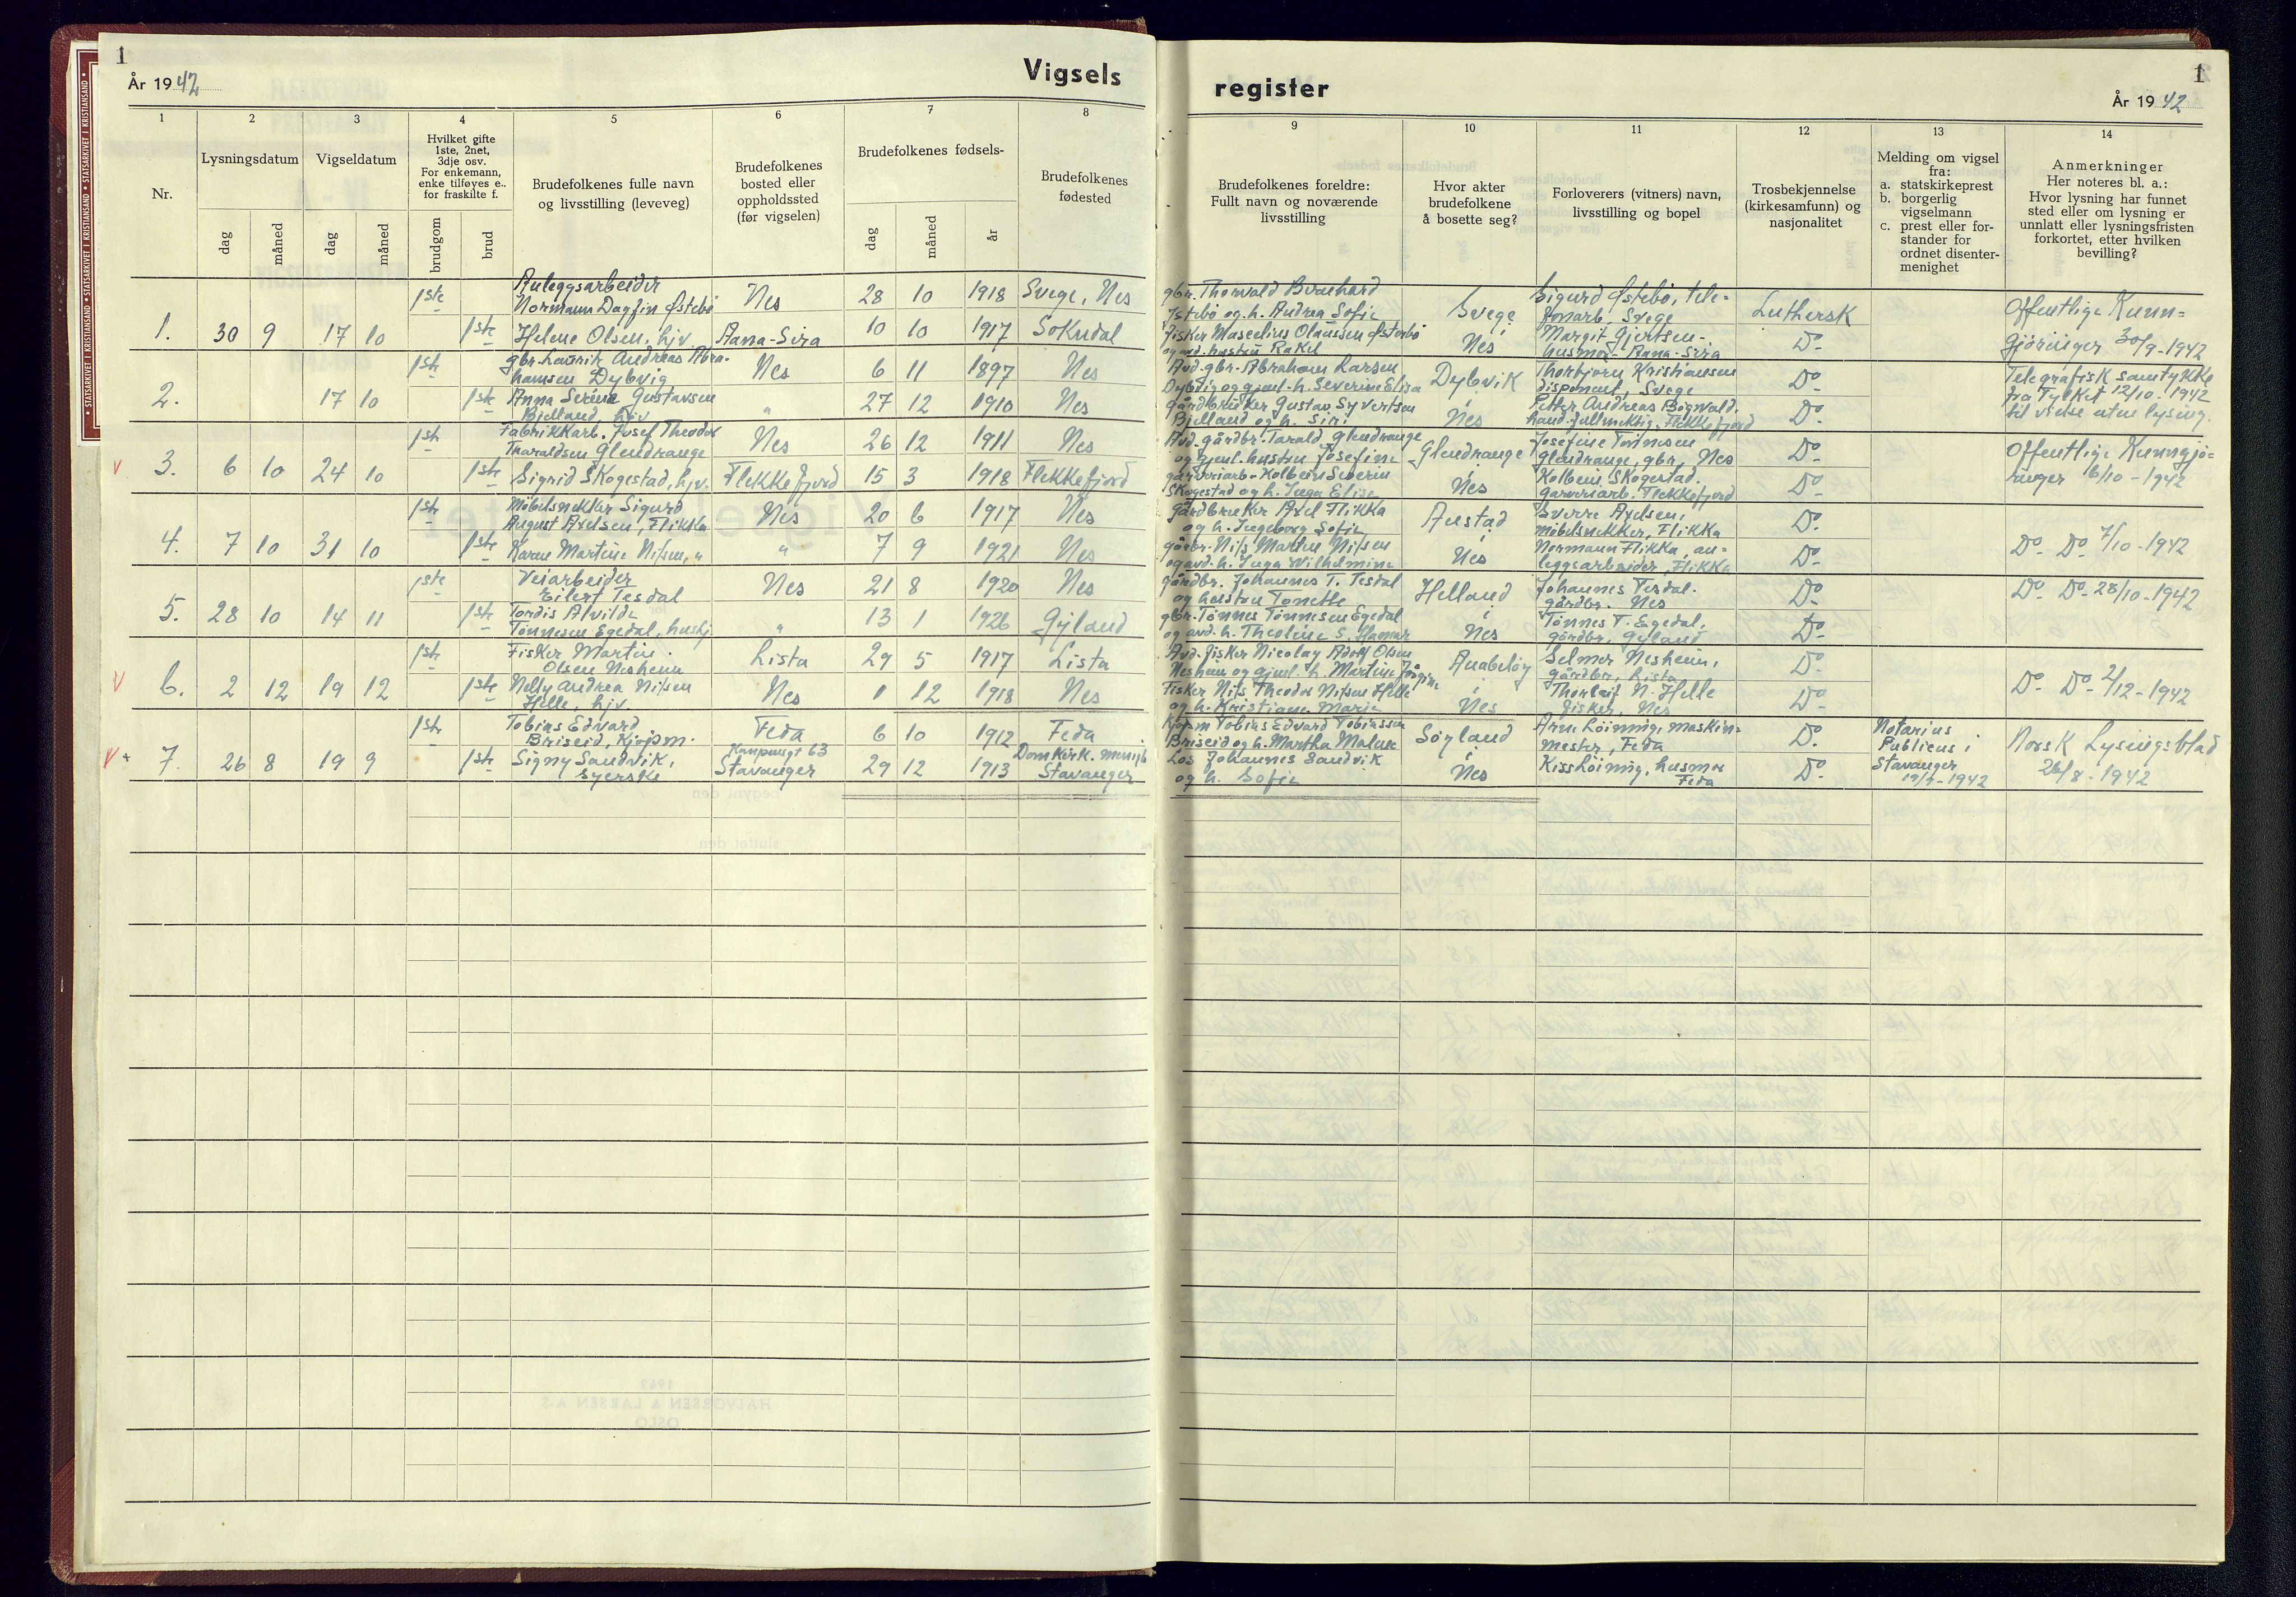 1
År 1942
Vigsels
1
2
3
4
5
6
7
8
Nr.
Lysningsdatum
Vigseldatum
Hvilket gifte
1ste, 2net,
3dje osv.
For enkemann,
enke tilføyes e..
for fraskilte f.
Brudefolkenes fulle navn
og livsstilling (leveveg)
Brudefolkenes
bosted eller
oppholdssted
(før vigselen)
Brudefolkenes fødsels-
Brudefolkenes
fødested
dag
måned
dag
måned
brudgom
brud
dag
måned
år
1ste Anleggsarbeider
Normann Dagfin Østebø Nes 28 10 1918 Svege, Nes
1. 30 9 17 10 1ste Helene Olsen, hjv. Aana-Sira 10 10 1917 Sokndal
1ste gbr. Lauriz Andreas Abra-
hamsen Dybvig Nes 6 11 1897 Nes
2. 17 10 1ste Anna Serine Gustavsen
Bjelland, hjv. " 27 12 1910 Nes
1ste Fabrikkarb. Josef Theodor
Tharaldsen Glendrange Nes 26 12 1911 Nes
V 3. 6 10 24 10 1ste Sigrid Skogestad, hjv. Flekkefjord 15 3 1918 Flekkefjord
1ste Möbelsnekker Sigurd
August Axelsen, Flikka Nes 20 6 1917 Nes
4. 7 10 31 10 1ste Karen Martine Nilsen, " " 7 9 1921 Nes
1ste Veiarbeider
Eilert Tesdal Nes 21 8 1920 Nes
5. 28 10 14 11 1ste Tordis Alvilde
Tønnesen Egedal, hushj. " 13 1 1926 Gyland
1ste Fisker Martin
Olsen Nesheim Lista 29 5 1917 Lista
V 6. 2 12 19 12 1ste Nelly Andrea Nilsen
Helle, hjv. Nes 1 12 1918 Nes
1ste Tobias Edvard
Briseid, Kjøpm. Feda 6 10 1912 Feda
V + 7. 26 8 19 9 1ste Signy Sandvik,
syerske Kampensgt 63
Stavanger 29 12 1913 Domkirk. menigh
Stavanger
register
1
År 1942
9
10
11
12
13
14
Brudefolkenes foreldre:
Fullt navn og noværende
livsstilling
Hvor akter
brudefolkene
å bosette seg?
Forloverers (vitners) navn,
livsstilling og bopel
Trosbekjennelse
(kirkesamfunn) og
nasjonalitet
Melding om vigsel
fra:
a. statskirkeprest
b. borgerlig
vigselmann
c. prest eller for-
stander for
ordnet disenter-
menighet
Anmerkninger
Her noteres bl. a.:
Hvor lysning har funnet
sted eller om lysning er
unnlatt eller lysningsfristen
forkortet, etter hvilken
bevilling?
gbr. Thorvald Bernhard
Østebö og h. Andrea Sofie Svege Sigurd Østebö, tele-
fonarb. Svege Luthersk Offentlige Kunn-
Fisker Marselius Olaussen Østerbö
og avd. hustru Rakel i Nes Margit Gjertsen-
husmor- Aana-Sira Do- gjöringer 30/9-1942
Avd. gbr. Abraham Larsen
Dybvig og gjenl. h. Severine Elisa Dybvik Thorbjörn Kristiansen
disponent, Svege Do Telegrafisk samtykke
fra Fylket 12/10-1942
til vielse uten lysing.
Gårdbruker Gustav Syvertsen
Bjelland og h. Siri i Nes Petter Andreas Bögwald,
hand. fullmektig, Flekkefjord Do-
Avd. gårdbr. Tarald Glendrange
og gjenl. hustru Josefine Glendrange Josefine Tönnesen
Glendrange, gbr., Nes Do- Offentlige Kunngjö-
garveriarb. Kolbein Severin
Skogestad og h. Inga Elise i Nes Kolbein Skogestad.
garveriarb. Flekkefjord Do- ringer 6/10-1942
Gårdbruker Axel Flikka
og h. Ingeborg Sofie Austad Sverre Axelsen,
möbelsnekker, Flikka Do-
gårbr. Nils Martin Nilsen
og avd. h. Inga Wilhelmine i Nes Normann Flikka, an-
leggsarbeider, Flikka Do- Do- Do- 7/10-1942
gårdbr. Johannes T. Tesdal
og hustru Tonette Helland Johannes Tesdal.
gårdbr. Nes Do- Do- Do- 28/10-1942
gbr. Tønnes Tønnesen Egedal
og avd. h. Theoline S. Hamar i Nes Tönnes T. Egedal,
gårdbr., Gyland Do-
Avd. fisker Nicolay Adolf Olsen
Nesheim og gjenl. h. Martine Jörgine Anabelöy Selmer Nesheim,
gårdbr., Lista Do-
Fisker Nils Theodor Nilsen Helle
og h. Kristiane Marie i Nes Thorleif N. Helle
fisker, Nes Do- Do- Do- 2/12-1942
Kjöpm Tobias Edvard Tobiassen
Briseid og h. Martha Malene Söyland Arne Löining, maskin-
mester, Feda Do. Notarius
Publicus i
Stavanger
19/9-1942 Norsk Lysingsblad
26/8-1942
Los Johannes Sandvik
og h. Sofie i Nes Kiss Löining, husmor
Feda Do-